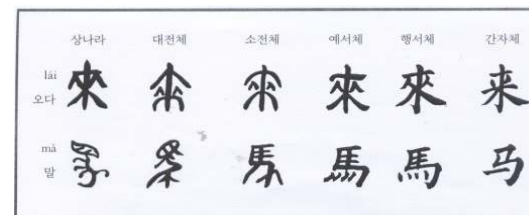 상나라 대전체 소전체 예서체 행서체 간자체
lái 來 來 來 來 來 来
오다
mǎ 馬 馬 馬 馬 馬 马
말